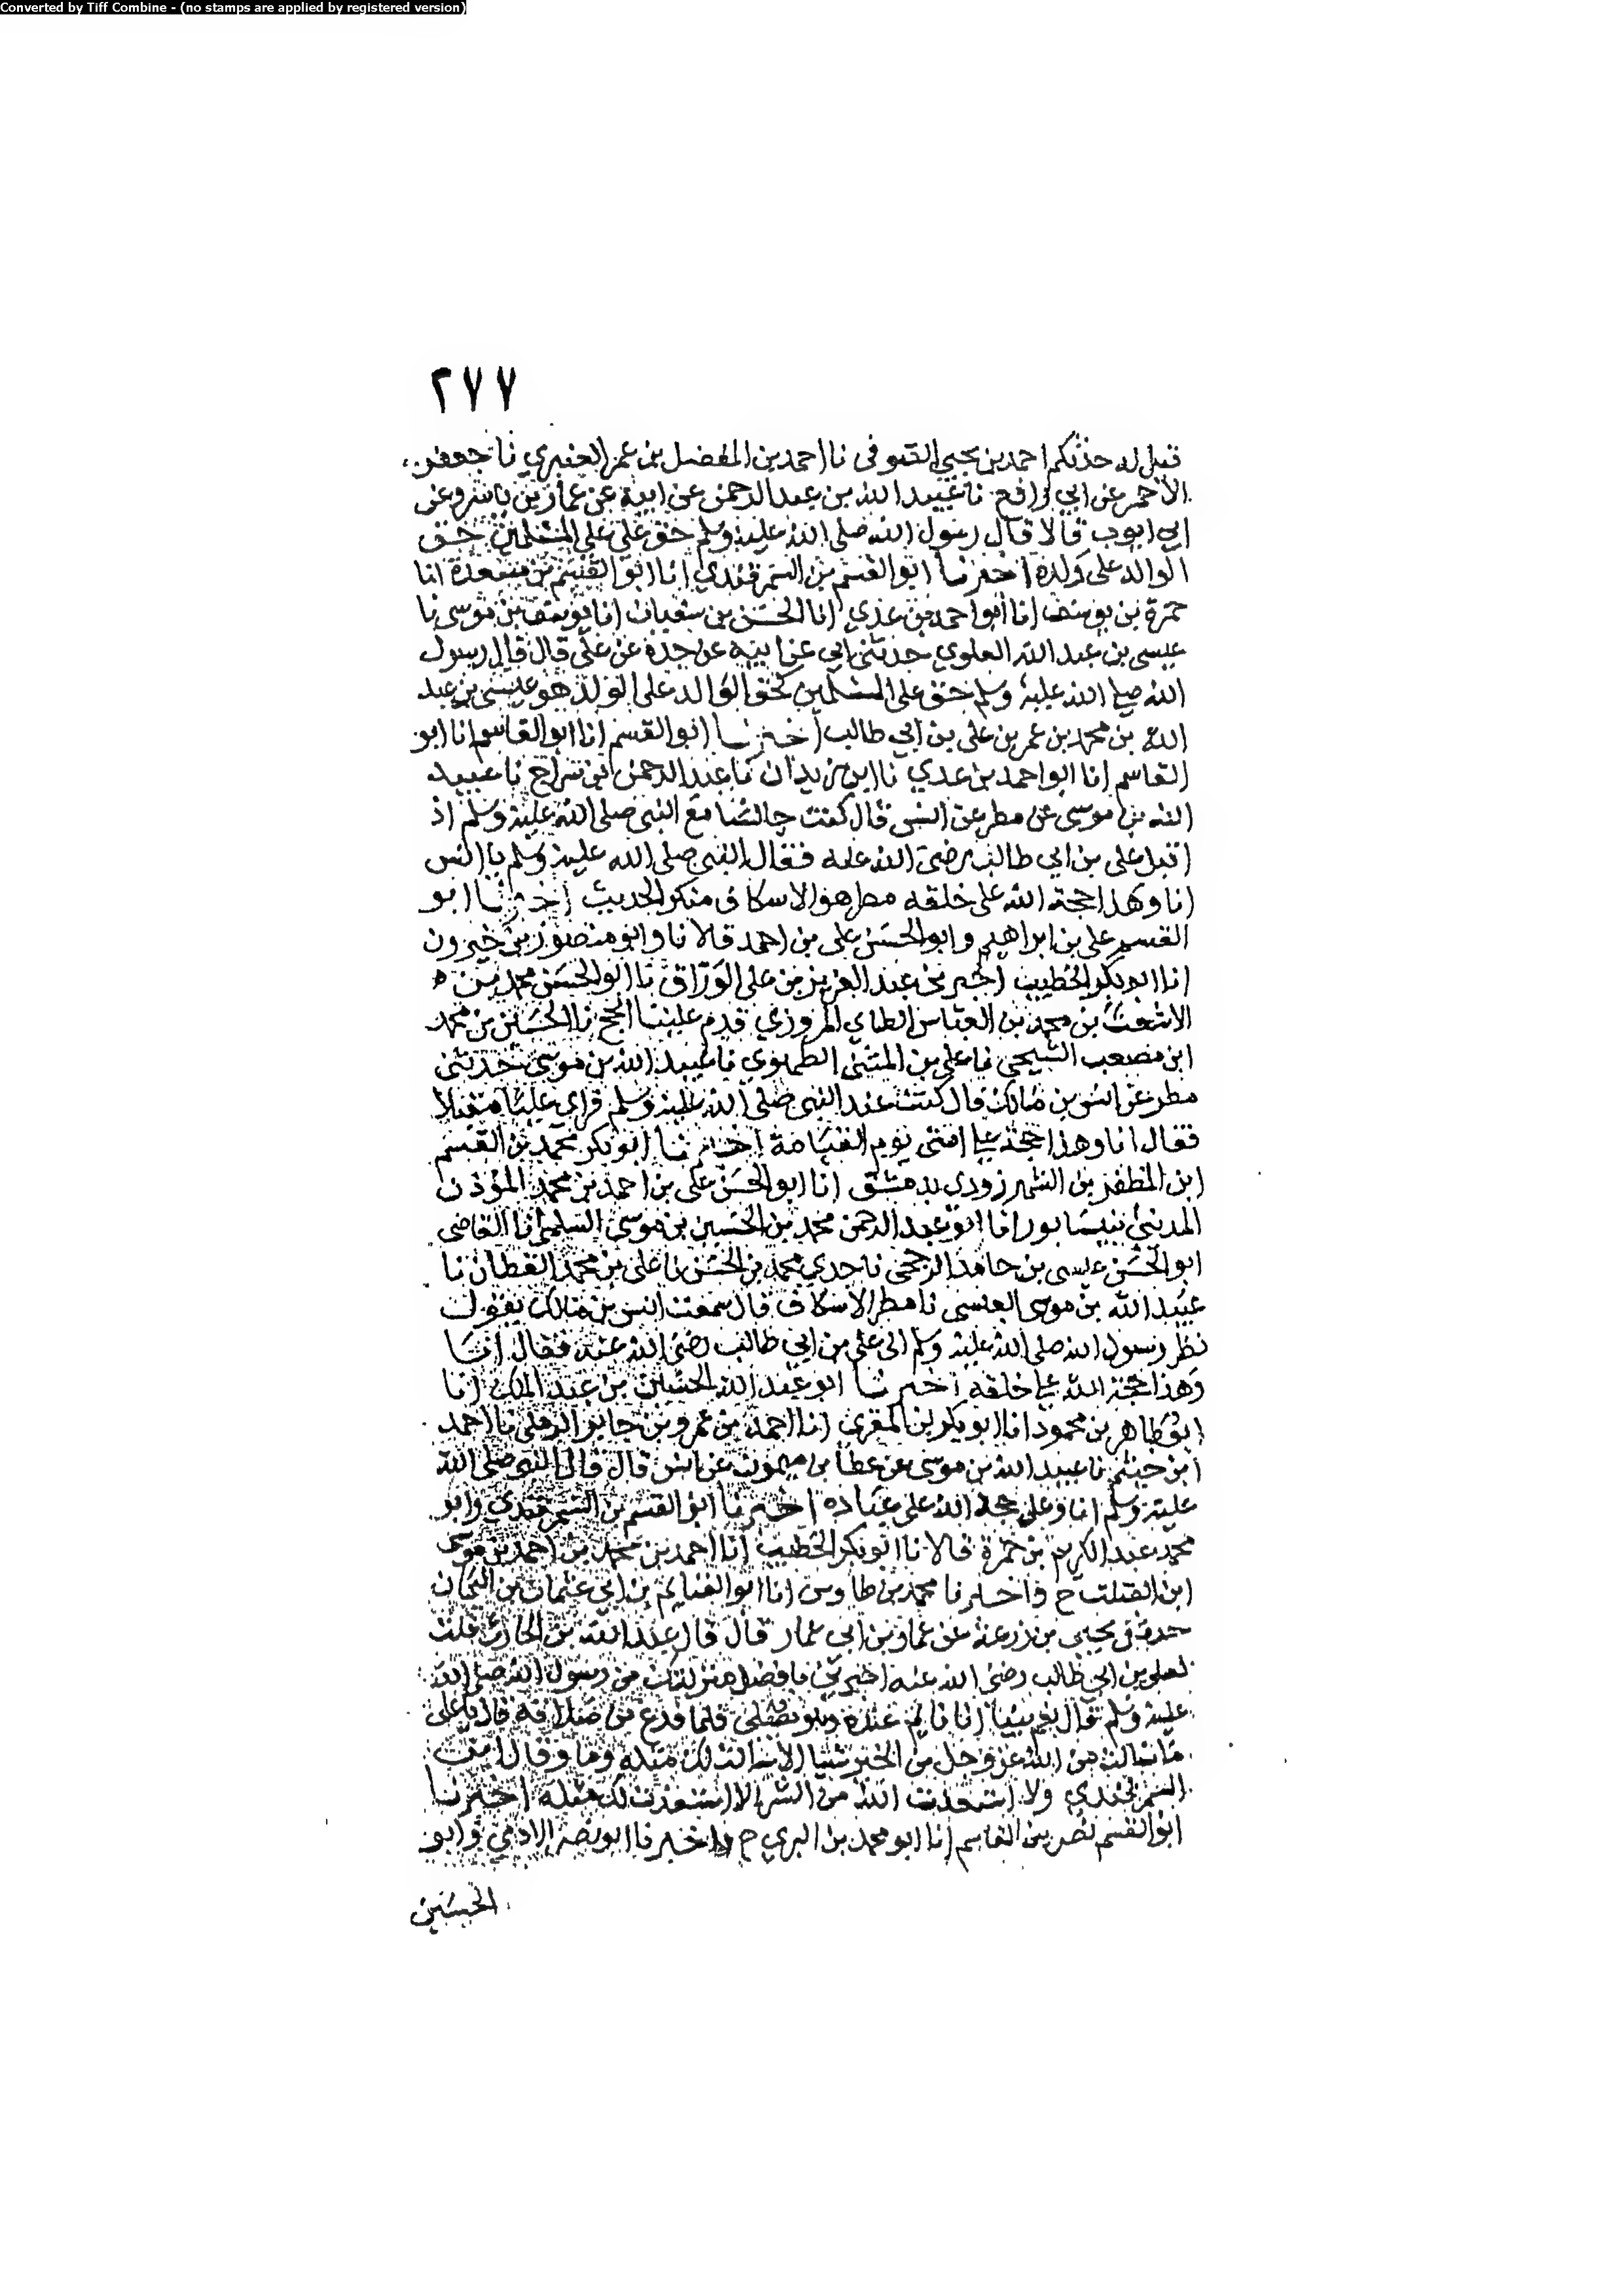 Converted by Tiff Combine - (no stamps are applied by registered version)
٢٧٧
قيل له حدثكم احمد بن يحيى الصوفى نا احمد بن المفضل بن عمر العنبري نا جعفر
الاحمر عن ابي رافع نا عبيد الله بن عبد الرحمن عن ابيه عن عمار بن ياسر وعن
ابي ايوب قالا قال رسول الله صلى الله عليه وسلم حق علي على المسلمين حق
الوالد على ولده اخبرنا ابو القسم بن السمرقندي انا ابو القسم بن مسعدة انا
حمزة بن يوسف انا ابو احمد بن عدي انا الحسن بن سفيان انا يوسف بن موسى نا
عيسى بن عبد الله العلوي حدثني ابي عن ابيه عن جده عن علي قال قال رسول
الله صلى الله عليه وسلم حق علي على المسلمين كحق الوالد على الولد هو عيسى بن عبد
الله بن محمد بن عمر بن علي بن ابي طالب اخبرنا ابو القسم انا ابو القاسم انا ابو
القاسم انا ابو احمد بن عدي نا ابن زيدان نا عبد الرحمن بن سراج نا عبيد
الله بن موسى عن مطر عن انس قال كنت جالسا مع النبي صلى الله عليه وسلم اذ
اقبل على بن ابي طالب رضى الله عنه فقال النبي صلى الله عليه وسلم يا انس
انا وهذا حجة الله على خلقه مطر هو الاسكاف منكر الحديث اخبرنا ابو
القسم على بن ابراهيم وابو الحسن على بن احمد قالا نا وابو منصور بن خيرون
انا ابو بكر الخطيب اخبرني عبد العزيز بن على الوراق نا ابو الحسن محمد بن
الاشعث بن محمد بن العباس الطاي المروزي قدم علينا الحج نا الحسين بن محمد
ابن مصعب السيحي نا على بن المثنى الطهوي نا عبيد الله بن موسى حدثني
مطر عن انس بن مالك قال كنت عند النبي صلى الله عليه وسلم فراى عليا مقبلا
فقال انا وهذا حجة على امتى يوم القيامة اخبرنا ابو بكر محمد بن القسم
ابن المظفر بن الشهرزورى بدمشق انا ابو الحسن على بن احمد بن محمد المؤذن
المديني بنيسابور انا ابو عبد الرحمن محمد بن الحسين بن موسى السلمي انا القاضى
ابو الحسن عيسى بن حامد الرخجي نا جدي محمد بن الحسن نا على بن محمد القطان نا
عبيد الله بن موسى العبسى نا مطر الاسكاف قال سمعت انس بن مالك يقول
نظر رسول الله صلى الله عليه وسلم الى على بن ابي طالب رضى الله عنه فقال انا
وهذا حجة الله على خلقه اخبرنا ابو عبد الله الحسين بن عبد الملك انا
ابو طاهر بن محمود انا ابو بكر بن المقرى انا احمد بن عمرو بن جابر الرملى نا احمد
ابن خيثم نا عبيد الله بن موسى عن عطا بن ميمون عن انس قال قال النبي صلى الله
عليه وسلم انا وعلى حجة الله على عباده اخبرنا ابو القسم بن السمرقندي وابو
محمد عبد الكريم بن حمزة قالا نا ابو بكر الخطيب انا احمد بن محمد بن احمد بن موسى
ابن الصلت ح واخبرنا محمد بن طاوس انا ابو الغنايم بن ابي عثمان بن
يحيى بن زرعة عن عمار بن ابي عمار قال قال عبد الله بن الحارث قلت
لعلى بن ابي طالب رضى الله عنه اخبرني بافضل منزلتك من رسول الله صلى الله
عليه وسلم قال بينا انا نايم عنده وهو يصلى فلما فرغ من صلاته قال يا على
ما سالت من الله عز وجل من الخير شيا الا سالت لك مثله وما وقال ابن
السمرقندي ولا استعذت الله من الشر الا استعذت لك مثله اخبرنا
ابو القسم نصر بن القاسم انا ابو محمد بن البري ح واخبرنا ابو نصر وابو
الحسين